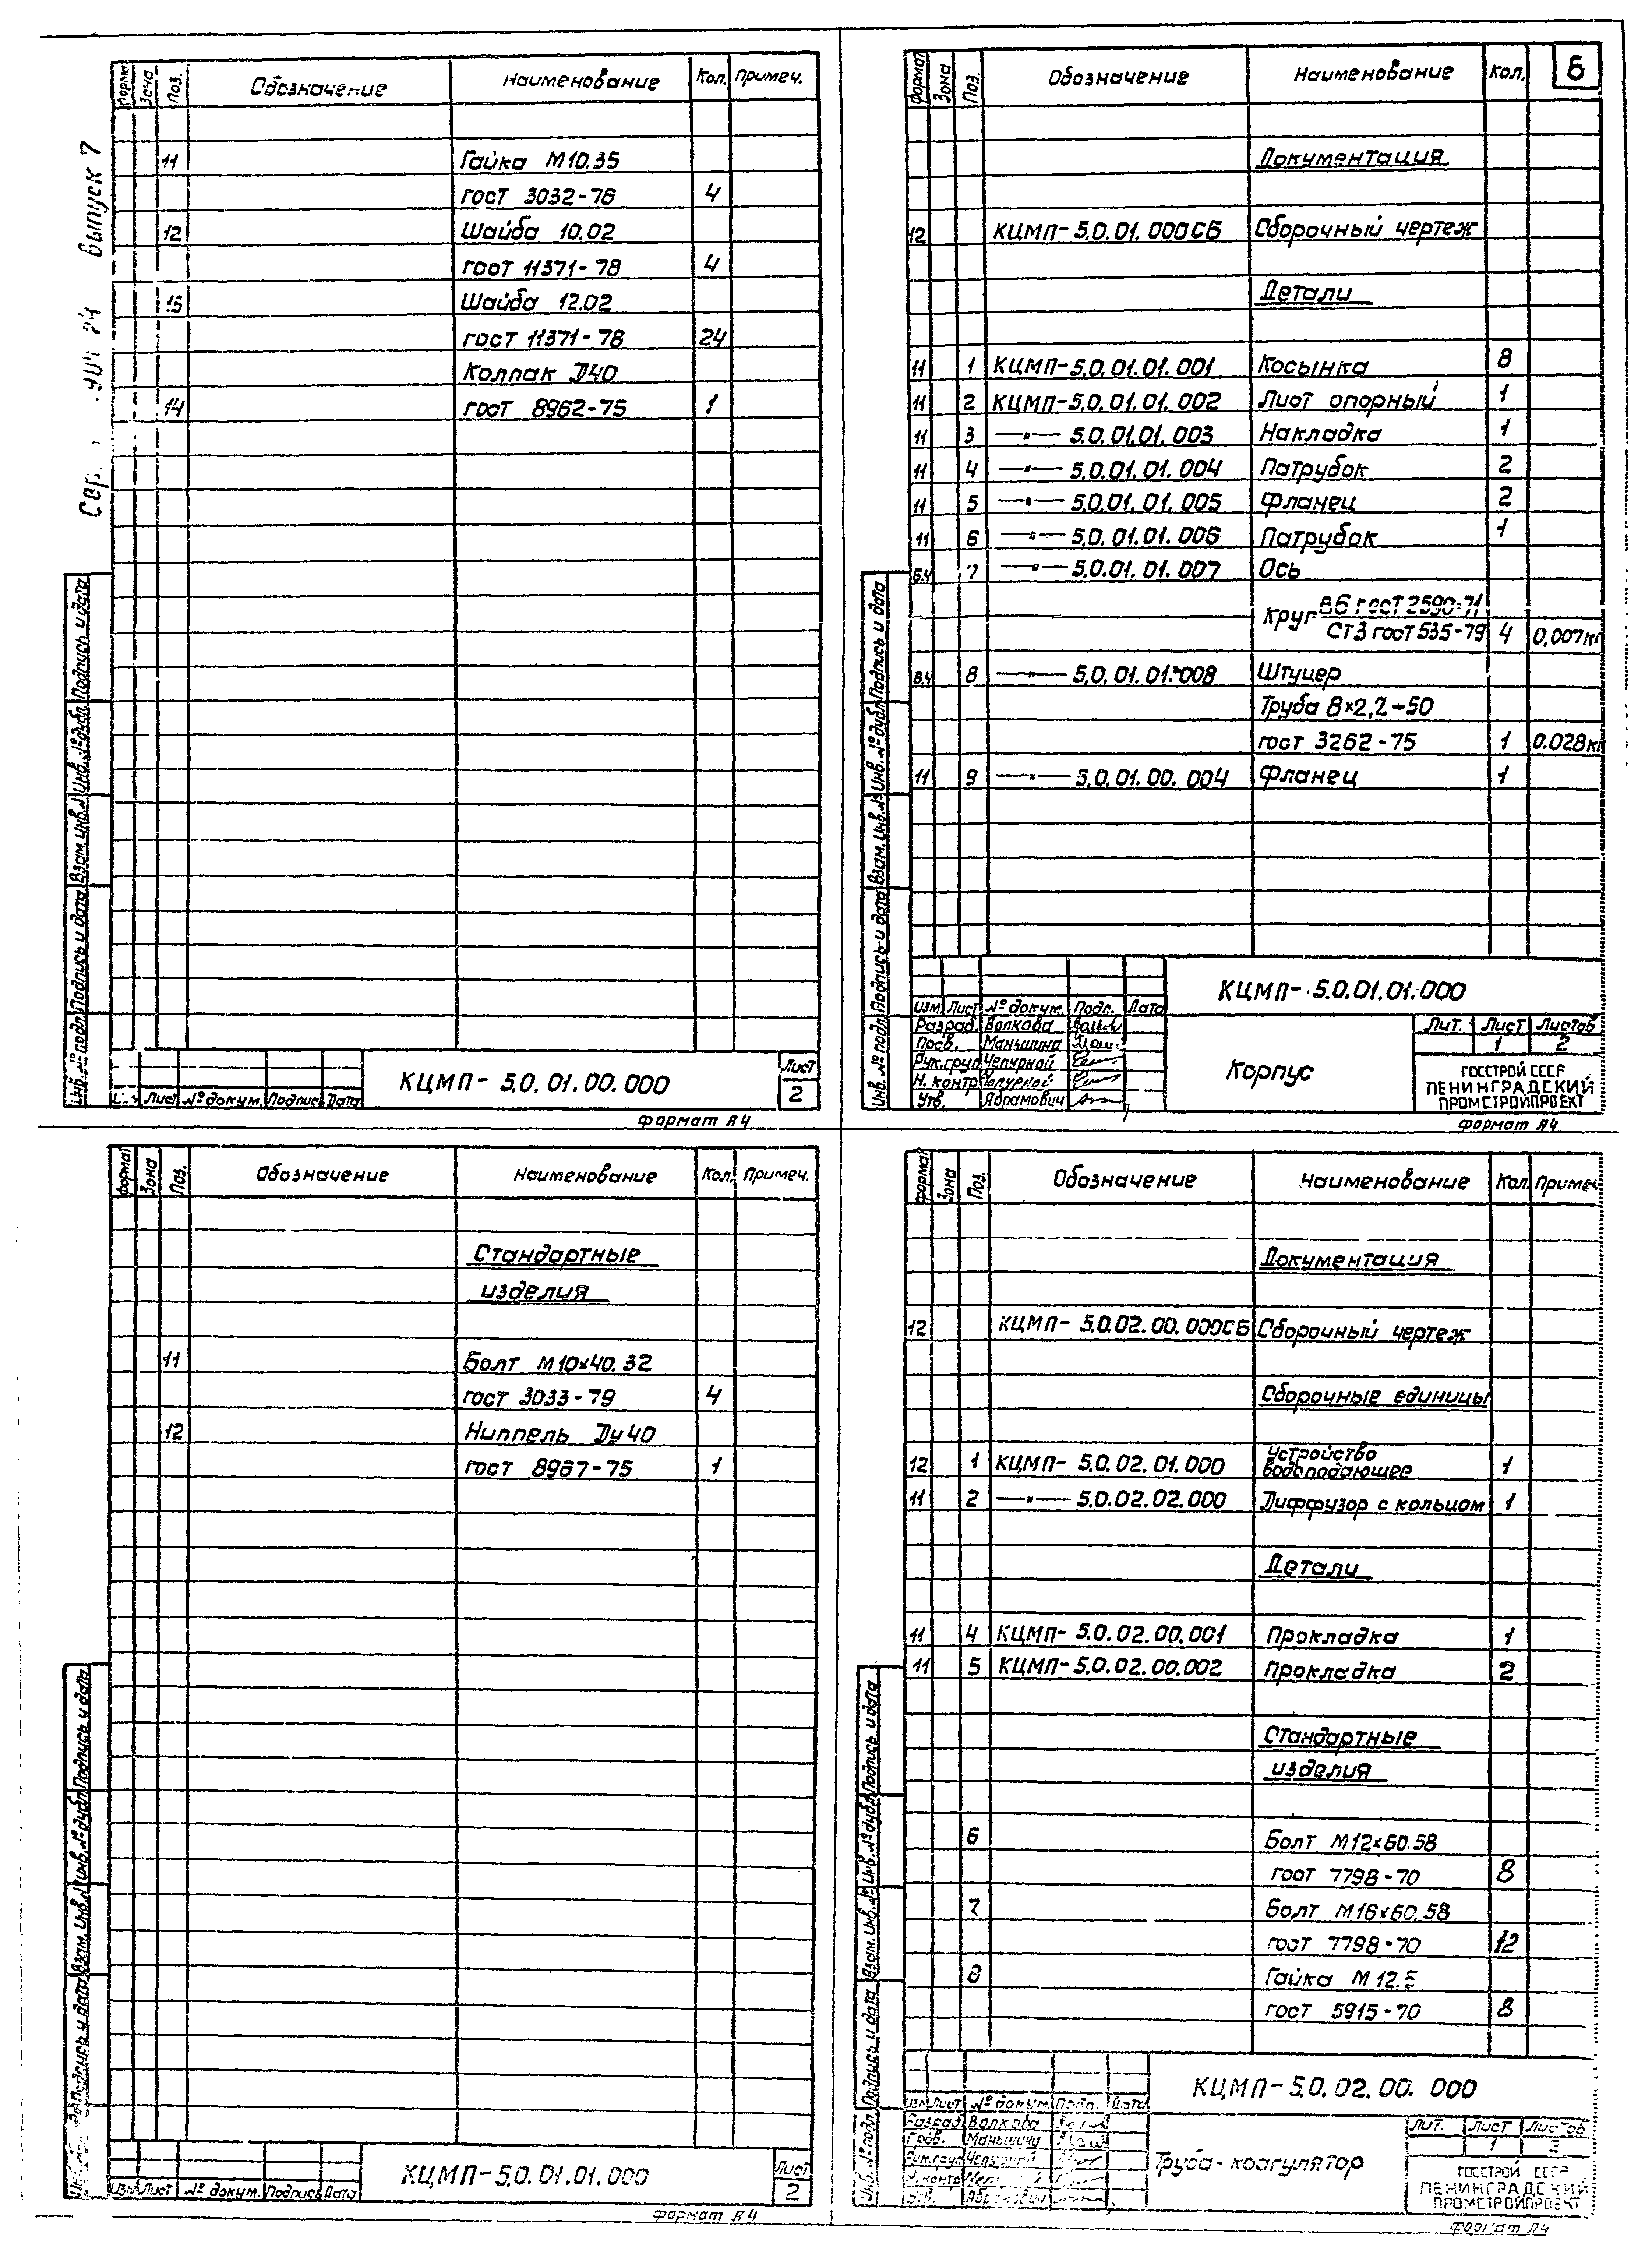 Формат Зона Поз. Обозначение Наименование Кол. Примеч.
11 Гайка М10.35
гост 3032-76 4
12 Шайба 10.02
гост 11371-78 4
Шайба 12.02
гост 11371-78 24
Колпак D40
14 гост 8962-75 1
Выпуск 7
Инв. № подл. Подпись и дата Взам. инв. № Инв. № дубл. Подпись и дата
КЦМП- 5.0.01.00.000
Лист
2
Лист № докум. Подпись Дата
Формат А4
Формат Зона Поз. Обозначение Наименование Кол. 6
Документация
12 КЦМП- 5.0.01.000СБ Сборочный чертеж
Детали
11 1 КЦМП-5.0.01.01.001 Косынка 8
11 2 КЦМП-5.0.01.01.002 Лист опорный 1
11 3 —"— 5.0.01.01.003 Накладка 1
11 4 —"— 5.0.01.01.004 Патрубок 2
11 5 —"— 5.0.01.01.005 Фланец 2
11 6 —"— 5.0.01.01.006 Патрубок 1
Б.Ч 7 —"— 5.0.01.01.007 Ось
Круг В6 гост 2590-71
СТ3 гост 535-79 4 0,007кг
Б.Ч 8 —"— 5.0.01.01.008 Штуцер
Труба 8×2,2-50
гост 3262-75 1 0.028кг
11 9 —"— 5.0.01.00.004 Фланец 1
Инв. № подл. Подпись и дата Взам. инв. № Инв. № дубл. Подпись и дата
КЦМП- 5.0.01.01.000
Изм. Лист № докум. Подп. Дата
Разраб. Волкова
Пров. Маньшина
Рук.груп Чепурной
Н. контр Чепурной
Утв. Абрамович
Корпус
Лит. Лист Листов
1 2
ГОССТРОЙ СССР
ЛЕНИНГРАДСКИЙ
ПРОМСТРОЙПРОЕКТ
Формат А4
Формат Зона Поз. Обозначение Наименование Кол. Примеч.
Стандартные
изделия
11 Болт М10×40.32
гост 3033-79 4
12 Ниппель Ду40
гост 8967-75 1
Подпись и дата Взам. инв. № Инв. № дубл. Подпись и дата
КЦМП-5.0.01.01.000
Лист
2
Изм Лист № докум. Подпись Дата
Формат А4
Формат Зона Поз. Обозначение Наименование Кол. Примеч
Документация
12 КЦМП- 5.0.02.00.000СБ Сборочный чертеж
Сборочные единицы
12 1 КЦМП- 5.0.02.01.000 Устройство
водоподающее 1
11 2 —"— 5.0.02.02.000 Диффузор с кольцом 1
Детали
11 4 КЦМП- 5.0.02.00.001 Прокладка 1
11 5 КЦМП- 5.0.02.00.002 Прокладка 2
Стандартные
изделия
6 Болт М12×60.58
гост 7798-70 8
7 Болт М16×60.58
гост 7798-70 12
8 Гайка М12.5
гост 5915-70 8
Инв. № подл. Подпись и дата Взам. инв. № Инв. № дубл. Подпись и дата
КЦМП-5.0.02.00.000
Изм Лист № докум. Подп. Дата
Разраб Волкова
Пров. Маньшина
Рук.груп Чепурной
Н.контр
Утв. Абрамович
Труба-коагулятор
Лит. Лист Листов
1 2
ГОССТРОЙ СССР
ЛЕНИНГРАДСКИЙ
ПРОМСТРОЙПРОЕКТ
Формат А4